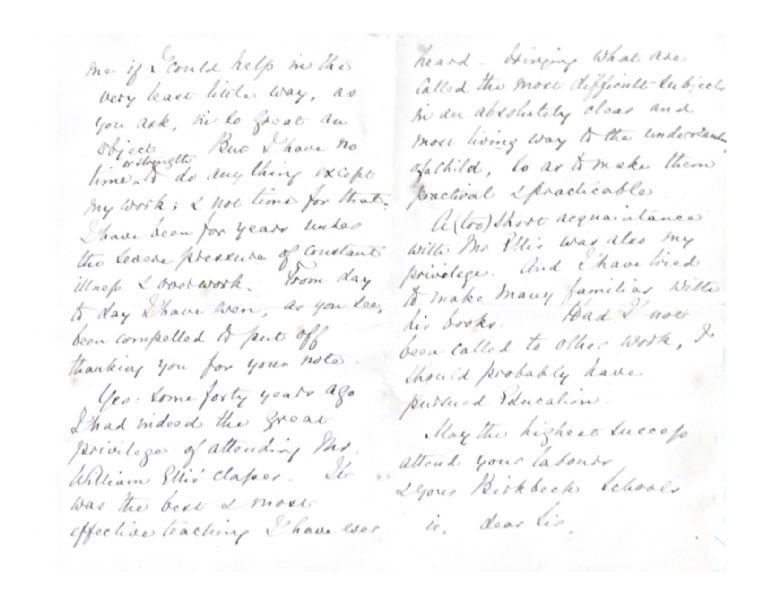 me if I could help in the
very least little way, as
you ask, in so great an
object. But I have no
time or strength to do any thing except
my work; & not time for that.
I have been for years under
the severe pressure of constant
illness & overwork. From day
to day I have even, as you see,
been compelled to put off
thanking you for your note.
Yes: some forty years ago
I had indeed the great
privilege of attending Mr.
William Ellis' classes. It
was the best & most
effective teaching I have ever
heard - bringing what are
called the most difficult subjects
in an absolutely clear and
most living way to the understand
of a child, so as to make them
practical & practicable.
A (too) short acquaintance
with Mr Ellis was also my
privilege. And I have tried
to make many familiar with
his books. Had I not
been called to other work, I
should probably have
pursued Education.
May the highest success
attend your labours
& your Birkbeck Schools
is, dear Sir,